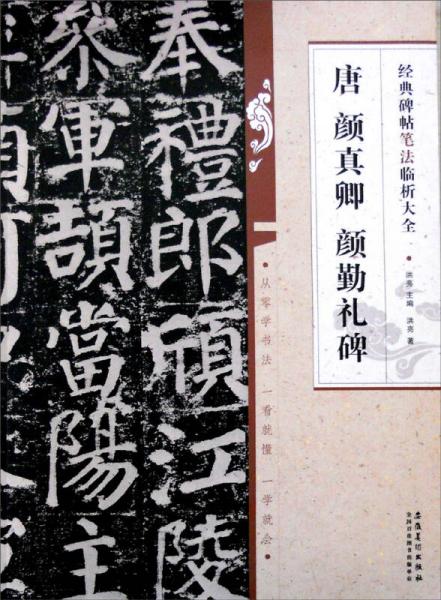 经典碑帖笔法临析大全
洪亮 主编 洪亮 著
唐 颜真卿 颜勤礼碑
从零学书法 一看就懂 一学就会
奉禮郎頎江陵
叅軍頡當陽主
安徽美术出版社
全国百佳图书出版单位